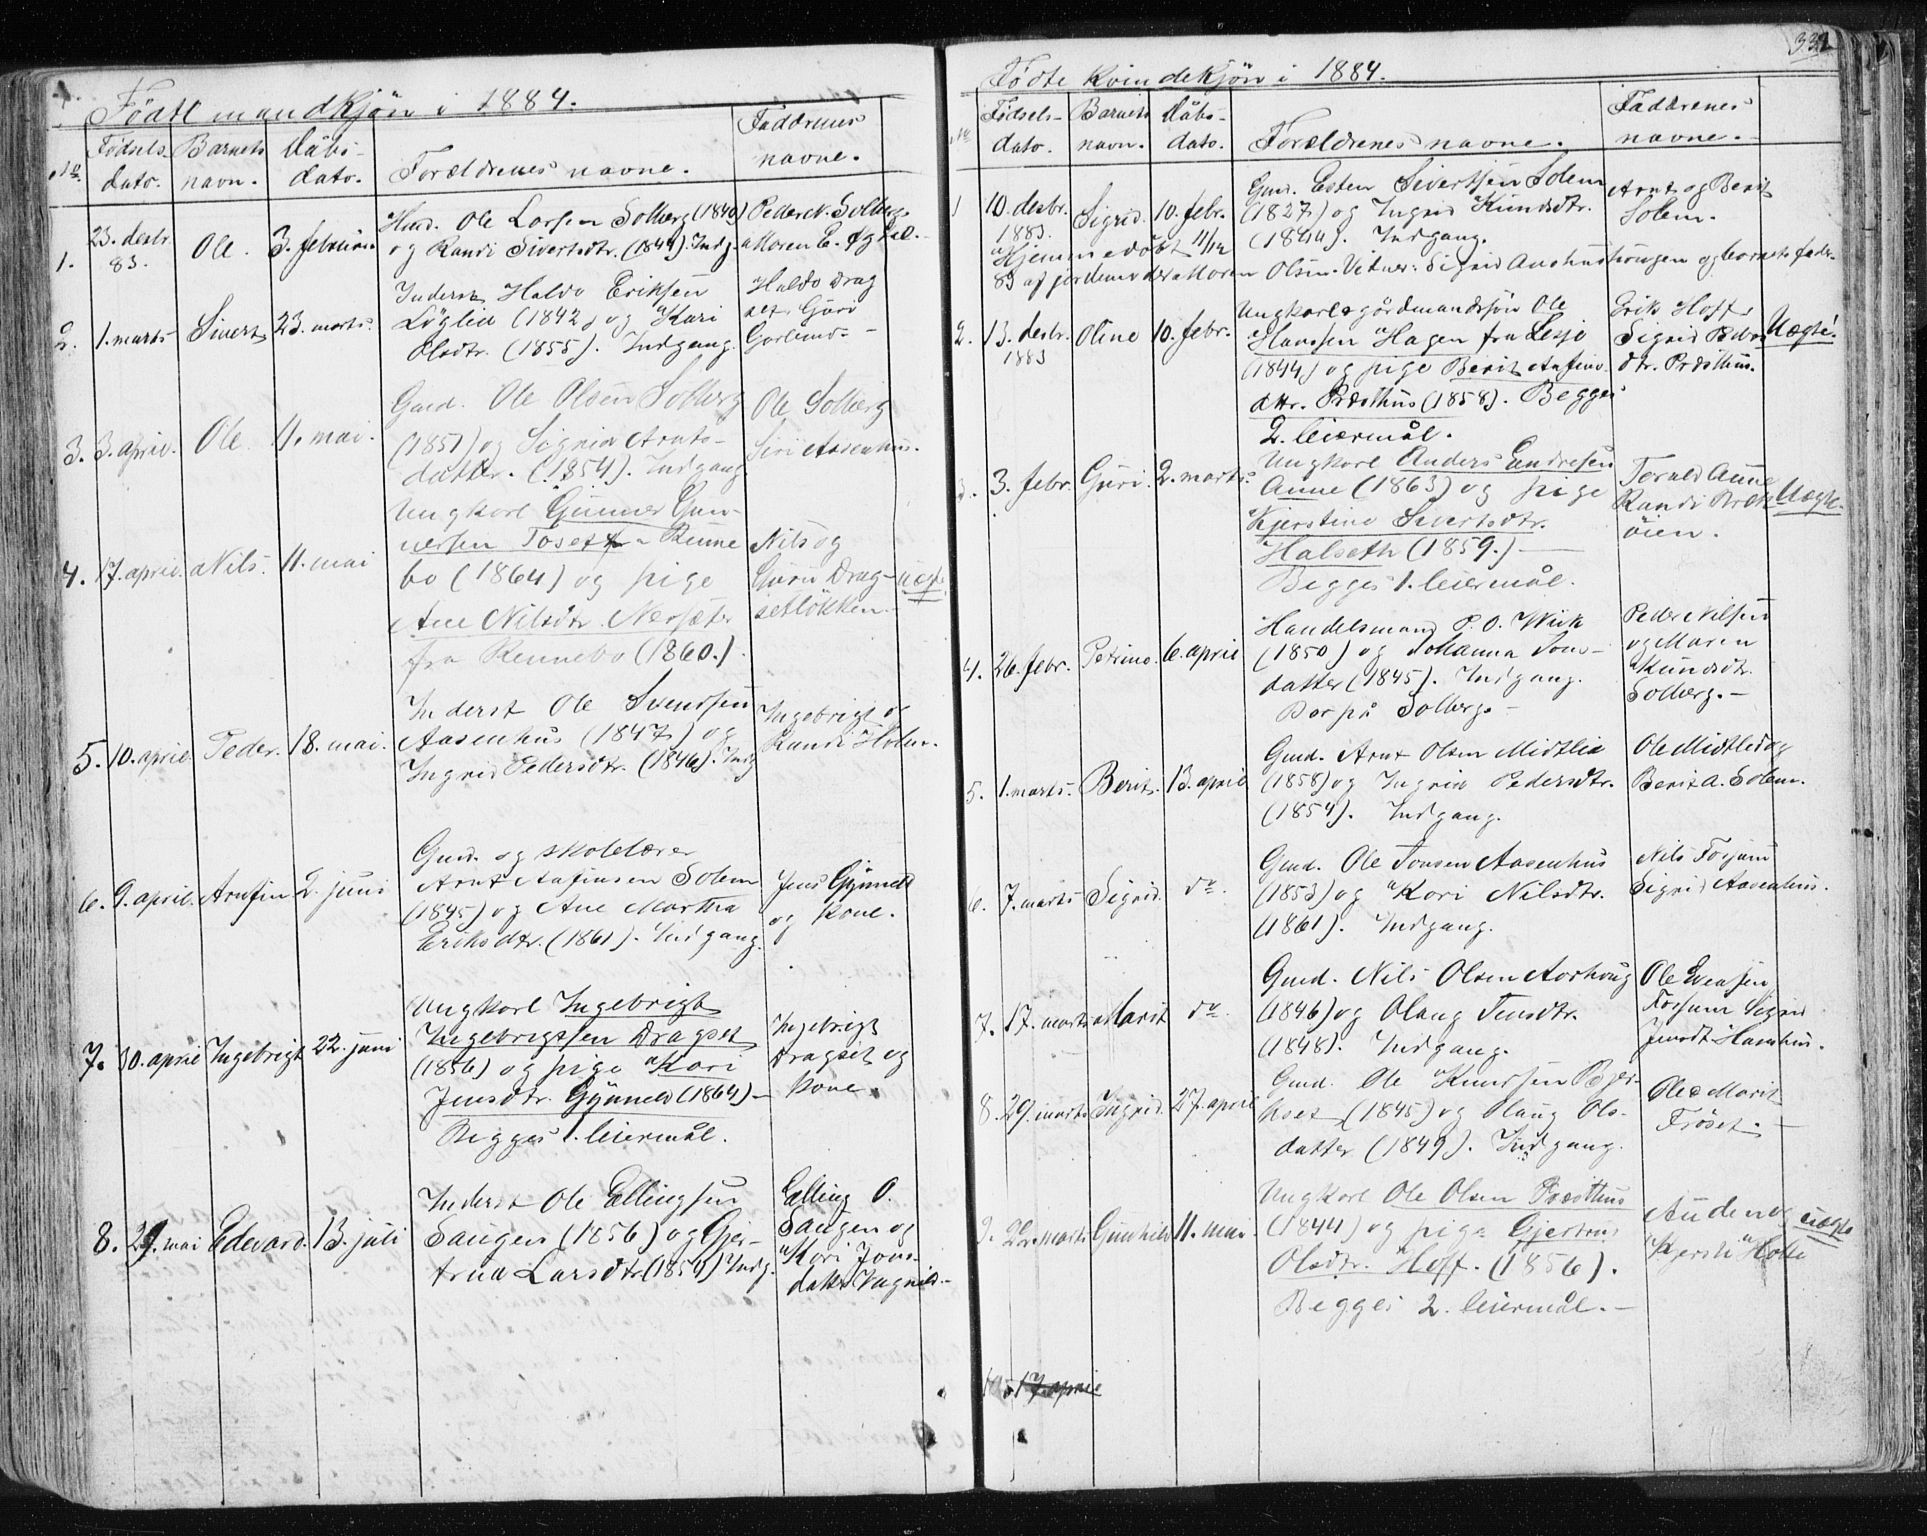 Födte mandkjön i 1884.
No.
Födsels-
dato.
Barnets
navn.
Dåbs-
dato.
Forældrenes navne.
Faddrenes
navne.
1.
23. desbr.
83.
Ole.
3. februar
Gmd. Ole Larsen Solberg (1840)
og Randi Sivertsdtr. (1844). Indg.
Peder N. Solberg
Maren E.
2.
1. marts
Sivert
23. marts.
Inderst Haldo Eriksen
Löglid (1842) og Kari
Olsdtr. (1855). Indgang.
Haldo Drag
set, Guri
3.
3. april.
Ole
11. mai.
Gmd. Ole Olsen Solberg
(1851) og Sigrid Arnts-
datter. (1854). Indgang
Ole Solberg
Siri Aasenhus.
4.
17. april.
Nils.
11. mai
Ungkarl Gunner Gun-
nersen Toset fra Renne
bo (1864) og pige
Ane Nilsdtr. Nersæter
fra Rennebo (1860.)
Nils og
Guru Drag-
setlökken.
uægt.
5.
10. april
Peder.
18. mai.
Inderst Ole Svendsen
Aasenhus (1847) og
Ingrid Pedersdtr. (1846). Indg
Ingebrigt og
Randi Holen.
6.
9. april.
Arnfin
2. juni
Gmd. og skolelærer
Arnt Arfinsen Solem
(1845) og Ane Martha
Eriksdtr. (1861). Indgang.
Jens Gynneld
og kone.
7.
30. april
Ingebrigt
22. juni
Ungkarl Ingebrigt
Ingebrigtsen Dragset
(1856) og pige Kari
Jensdtr. Gynneld (1864) —
Begges 1. leiermål.
Ingebrigt
Dragset og
kone.
8.
29. mai
Edevard.
13. juli
Inderst Ole Ellingsen
Haugen (1856) og Gjer-
trud Larsdtr. (1854) Indg.
Elling O.
Haugen og
Kari Jons-
datter Vagnild. —
332
Födte kvindekjön i 1884.
No
Födsels-
dato.
Barnets
navn.
Dåbs-
dato.
Forældrenes navne.
Faddrenes
navne. —
1
10. desbr.
1883.
Sigrid.
10. febr.
Gmd. Esten Sivertsen Solem
(1827) og Ingrid Knudsdtr.
(1844). Indgang.
Arnt og Berit
Solem.
Hjemmedöbt 11/12
83 af jordemoder Maren Olsen. Vitner: Sigrid Aushushaugen og barnets fader.
2.
13. desbr.
1883
Oline
10. febr.
Ungkarl gårdmandssön Ole
Hanssen Hagen fra Lesje
(1844) og pige Berit Arfins-
dtr. Præsthus (1858). Begges
2. leiermål.
Erik Hoff,
Sigrid Peders
dtr. Præsthus.
Uægte!
3.
3. febr.
Guri.
2. marts.
Ungkarl Anders Endresen
Aune (1863) og pige
Kjerstine Sivertsdtr.
Halseth (1859.) —
Begges 1. leiermål.
Torald Aune
Randi Bræk
öien.
Uægte.
4.
26. febr.
Petrine.
6. april
Handelsmand P. O. Wiik
(1850) og Johanna Jons-
datter (1845). Indgang.
Bor på Solberg. —
Peder Nilsen
og Maren
Knudsdtr.
Solberg. —
5.
1. marts.
Berit.
13. april
Gmd. Arnt Olsen Midtlid
(1858) og Ingrid Pedersdtr.
(1854). Indgang.
Ole Midtlid og
Berit A. Solem.
6.
7. marts
Sigrid.
do.
Gmd. Ole Jonsen Aasenhus
(1853) og Kari Nilsdtr.
(1861). Indgang.
Nils Forsum
Sigrid Aasenhus.
7.
17. marts
Marit
do.
Gmd. Nils Olsen Aarhoug
(1846) og Olaug Jensdtr.
(1848). Indgang.
Ole Evensen
Forsum Sigrid
Jensdtr. Hamhus.
8.
29. marts
Ingrid.
27. april
Gmd. Ole Knudsen Bjer-
kset (1845) og Olaug Ols-
datter (1849). Indgang.
Ole & Marit
Fröset. —
9.
22. marts
Gunhild
11. mai.
Ungkarl Ole Olsen Præsthus
(1844) og pige Gjertrud
Olsdtr. Hoff. (1856).
Begges 2. leiermål. —
Auden og
Kjersti Holte
uægte
10.
17. april